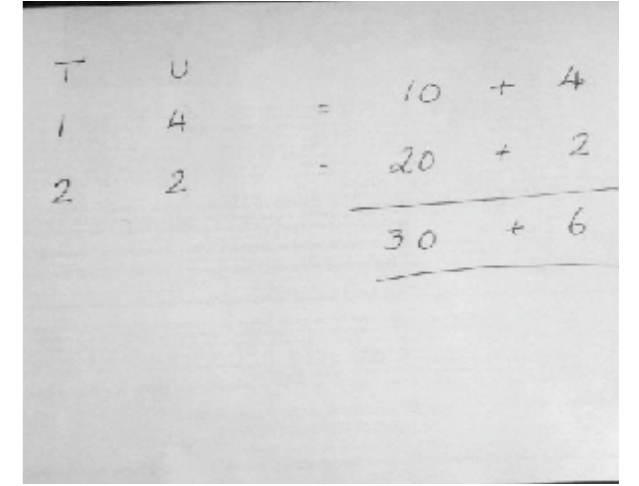 T U
1 4 = 10 + 4
2 2 - 20 + 2
30 + 6